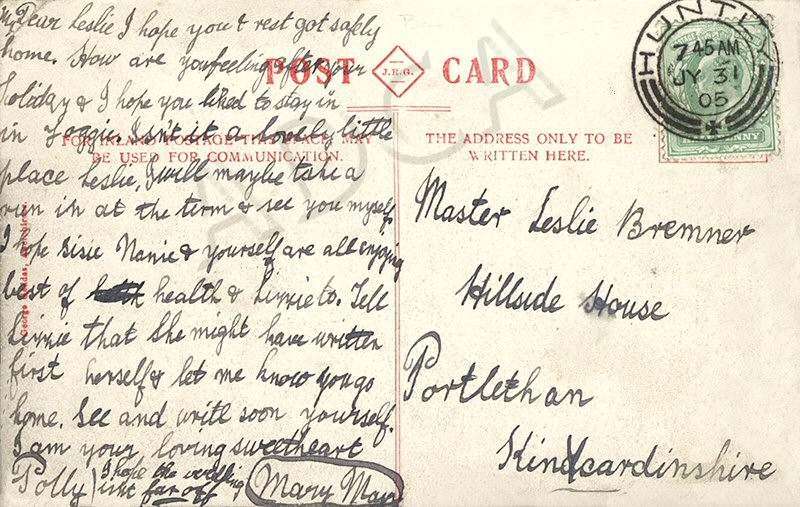 My Dear Leslie I hope you & rest got safely
home. How are you feeling after your
holiday & I hope you liked to stay in
in Foggie. Isn't it a lovely little
place Leslie, I will maybe take a
run in at the term & see you myself.
I hope Sisie Nanie & yourself are all enjoying
best of health & Lizzie to. Tell
Lizzie that she might have written
first herself & let me know you go
home. See and writ soon yourself.
I am your loving sweetheart
Polly
I hope the wedding
isnt far off
Mary Mair
POST CARD
J.R.G.
FOR INLAND POSTAGE THIS SPACE MAY
BE USED FOR COMMUNICATION.
THE ADDRESS ONLY TO BE
WRITTEN HERE.
HUNTLY
7 45 AM
JY 31
05
Master Leslie Bremner
Hillside House
Portlethan
Kincardinshire
George
ADCA